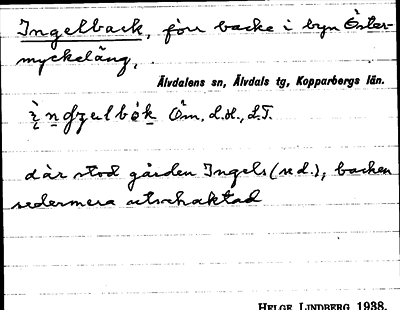 Ingelback, förr backe i byn Öster-
myckeläng,
Älvdalens sn, Älvdals tg, Kopparbergs län.
Öm, L.H., L.T.
där stod gården Ingels (n d.), backen
sedermera utschaktad
HELGE LINDBERG 1938.